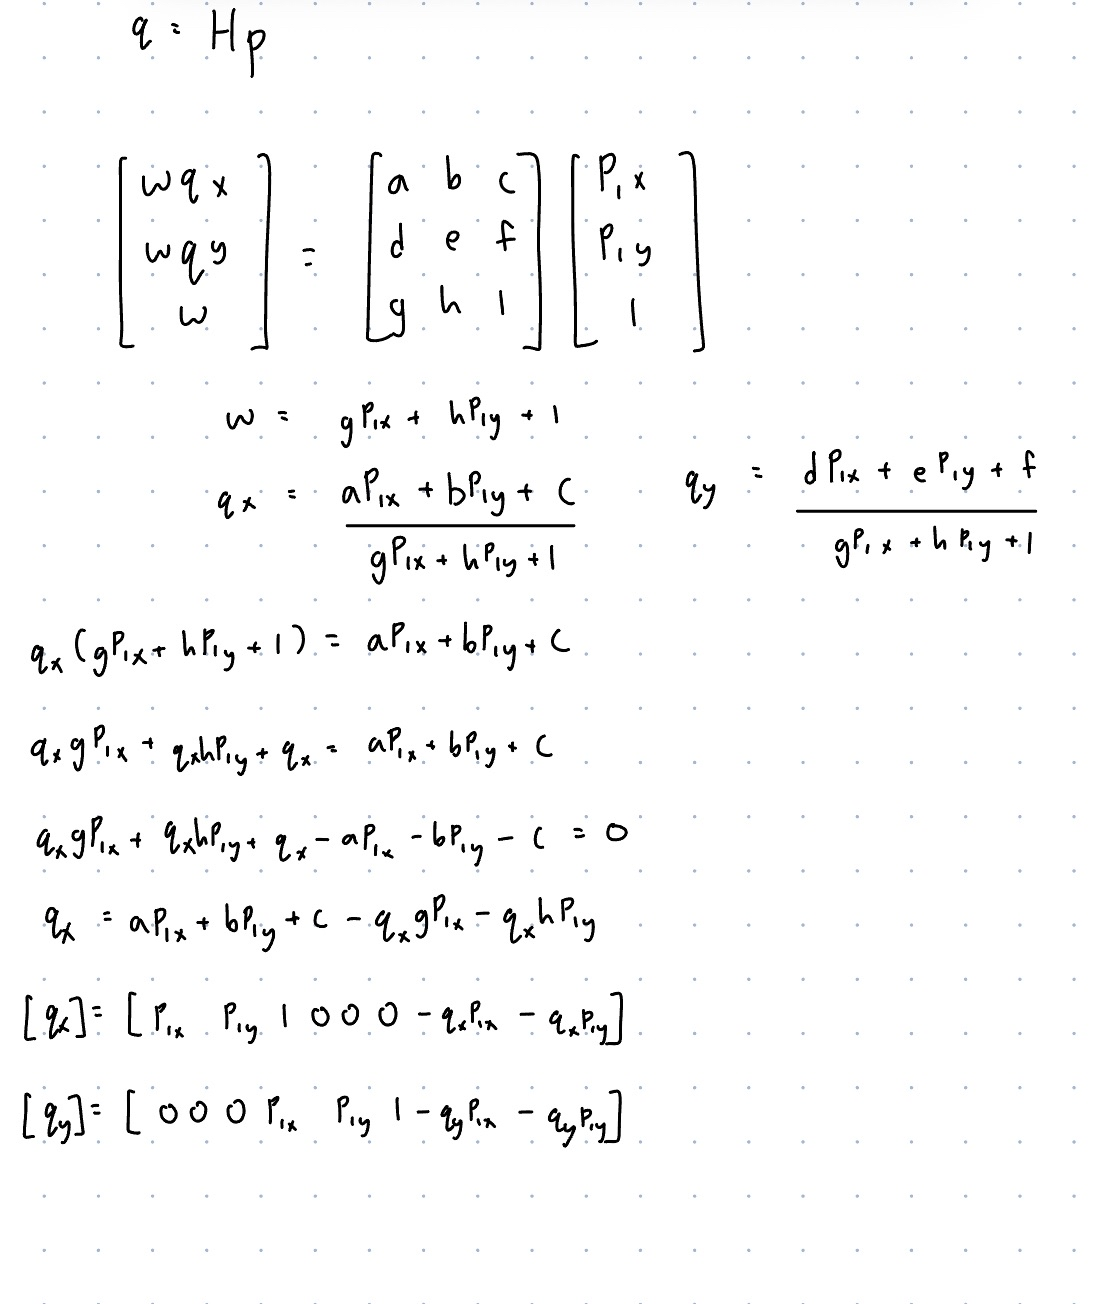 q = Hp
[wqx] = [a b c] [P₁x]
[wqy] [d e f] [P₁y]
[w] [g h 1] [1]
w = gP₁x + hP₁y + 1
qx = (aP₁x + bP₁y + c) / (gP₁x + hP₁y + 1) qy = (dP₁x + eP₁y + f) / (gP₁x + hP₁y + 1)
qx (gP₁x + hP₁y + 1) = aP₁x + bP₁y + c
qx gP₁x + qx hP₁y + qx = aP₁x + bP₁y + c
qx gP₁x + qx hP₁y + qx - aP₁x - bP₁y - c = 0
qx = aP₁x + bP₁y + c - qx gP₁x - qx hP₁y
[qx] = [P₁x P₁y 1 0 0 0 - qxP₁x - qxP₁y]
[qy] = [0 0 0 P₁x P₁y 1 - qyP₁x - qyP₁y]